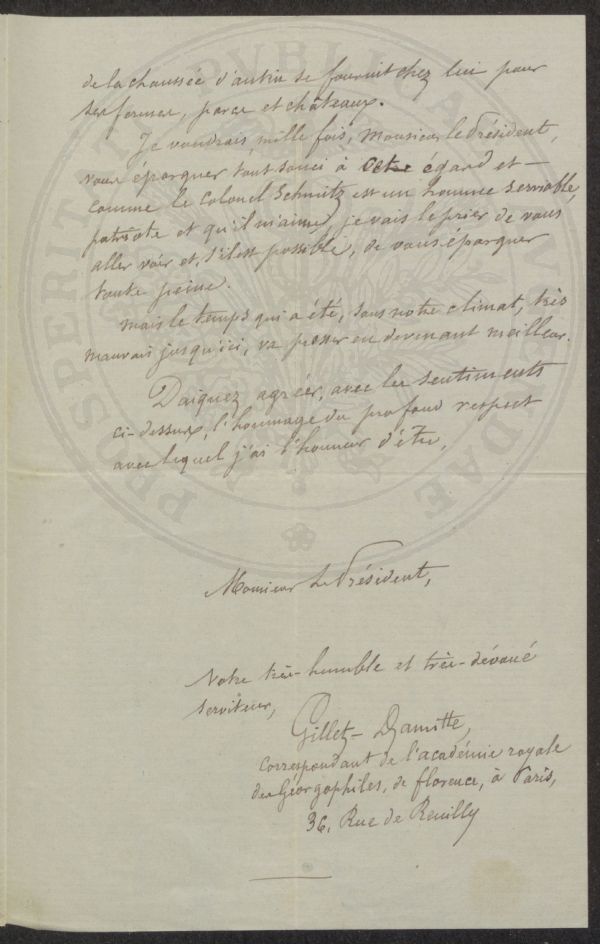 de la chaussée d'antin se fournit chez lui pour
ses fermes, parcs et châteaux.
Je voudrais, mille fois, Monsieur le Président,
vous épargner tout souci à cet égard et —
comme le Colonel Schmitz est un homme serviable,
patriote et qu'il m'aime, je vais le prier de vous
aller voir et, s'il est possible, de vous épargner
toute peine.
Mais le temps qui a été, sous notre climat, très
mauvais jusqu'ici, va presser en devenant meilleur.
Daignez agréer, avec les sentiments
ci-dessus, l'hommage du profond respect
avec lequel j'ai l'honneur d'être,
Monsieur le Président,
Votre très-humble et très-dévoué
serviteur,
Gillet-Damitte,
correspondant de l'académie royale
des Géorgophiles, de florence, à Paris,
36, Rue de Reuilly
PROSPERITATI PUBLICAE